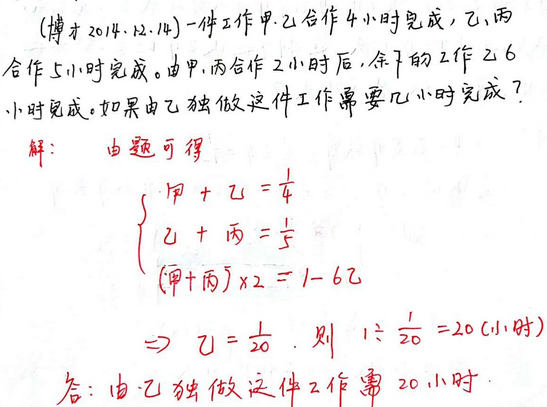 (博才2014.12.14)一件工作甲.乙合作4小时完成,乙、丙
合作5小时完成。由甲、丙合作2小时后,余下的工作乙6
小时完成。如果由乙独做这件工作需要几小时完成?
解: 由题可得
甲 + 乙 = 1/4
乙 + 丙 = 1/5
(甲+丙)×2 = 1-6乙
⇒ 乙 = 1/20 . 则 1÷1/20 =20(小时)
答:由乙独做这件工作需 20小时.